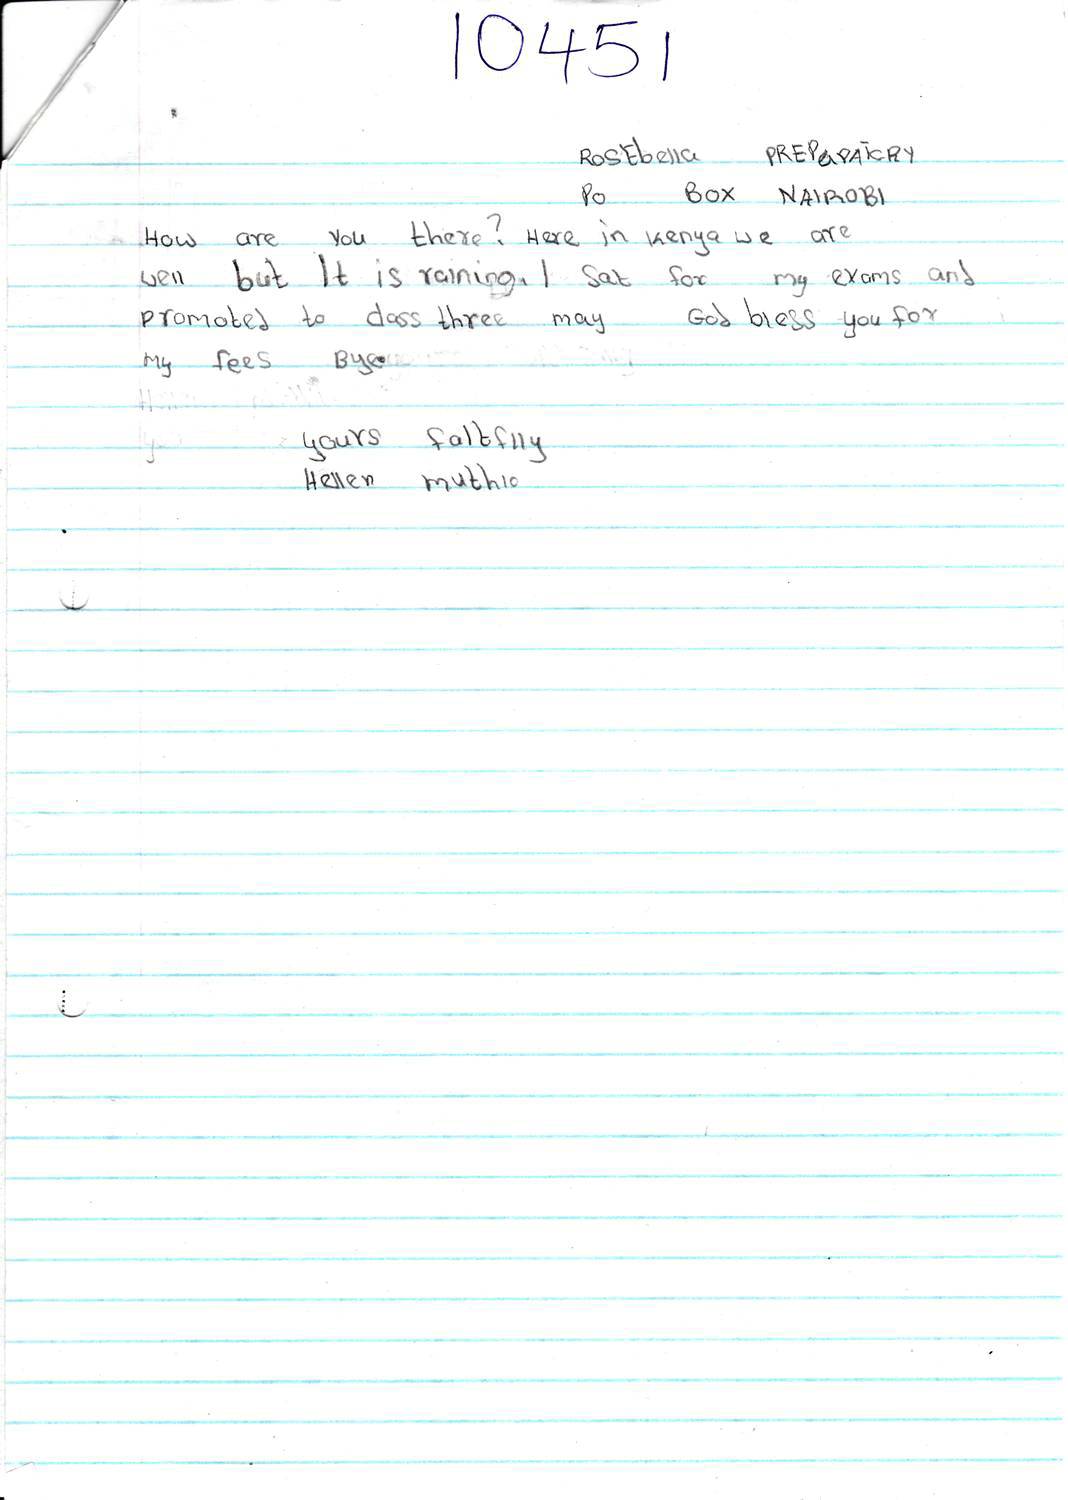 10451
ROSEbella PREPaPAICRY
Po BOX NAIROBI
How are you there? Here in kenya we are
well but It is raining. I Sat for my exams and
promoted to class three may God bless you for
My fees Bye
yours faltflly
Hellen muthio